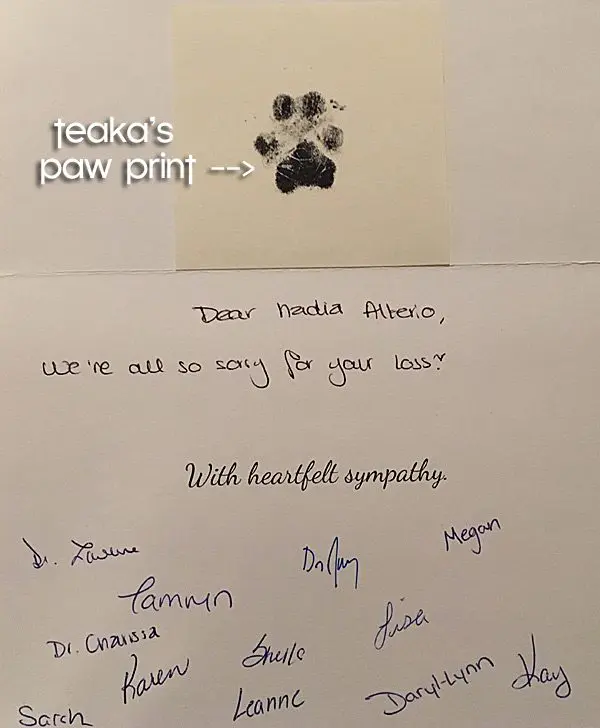 teaka's
paw print -->
Dear Nadia Alterio,
we're all so sorry for your loss?
With heartfelt sympathy.
Megan
Dr.
Tamryn
Lisa
Dr. Charissa
Sheila
Karen
Daryl-Lynn
Kay
Leanne
Sarah